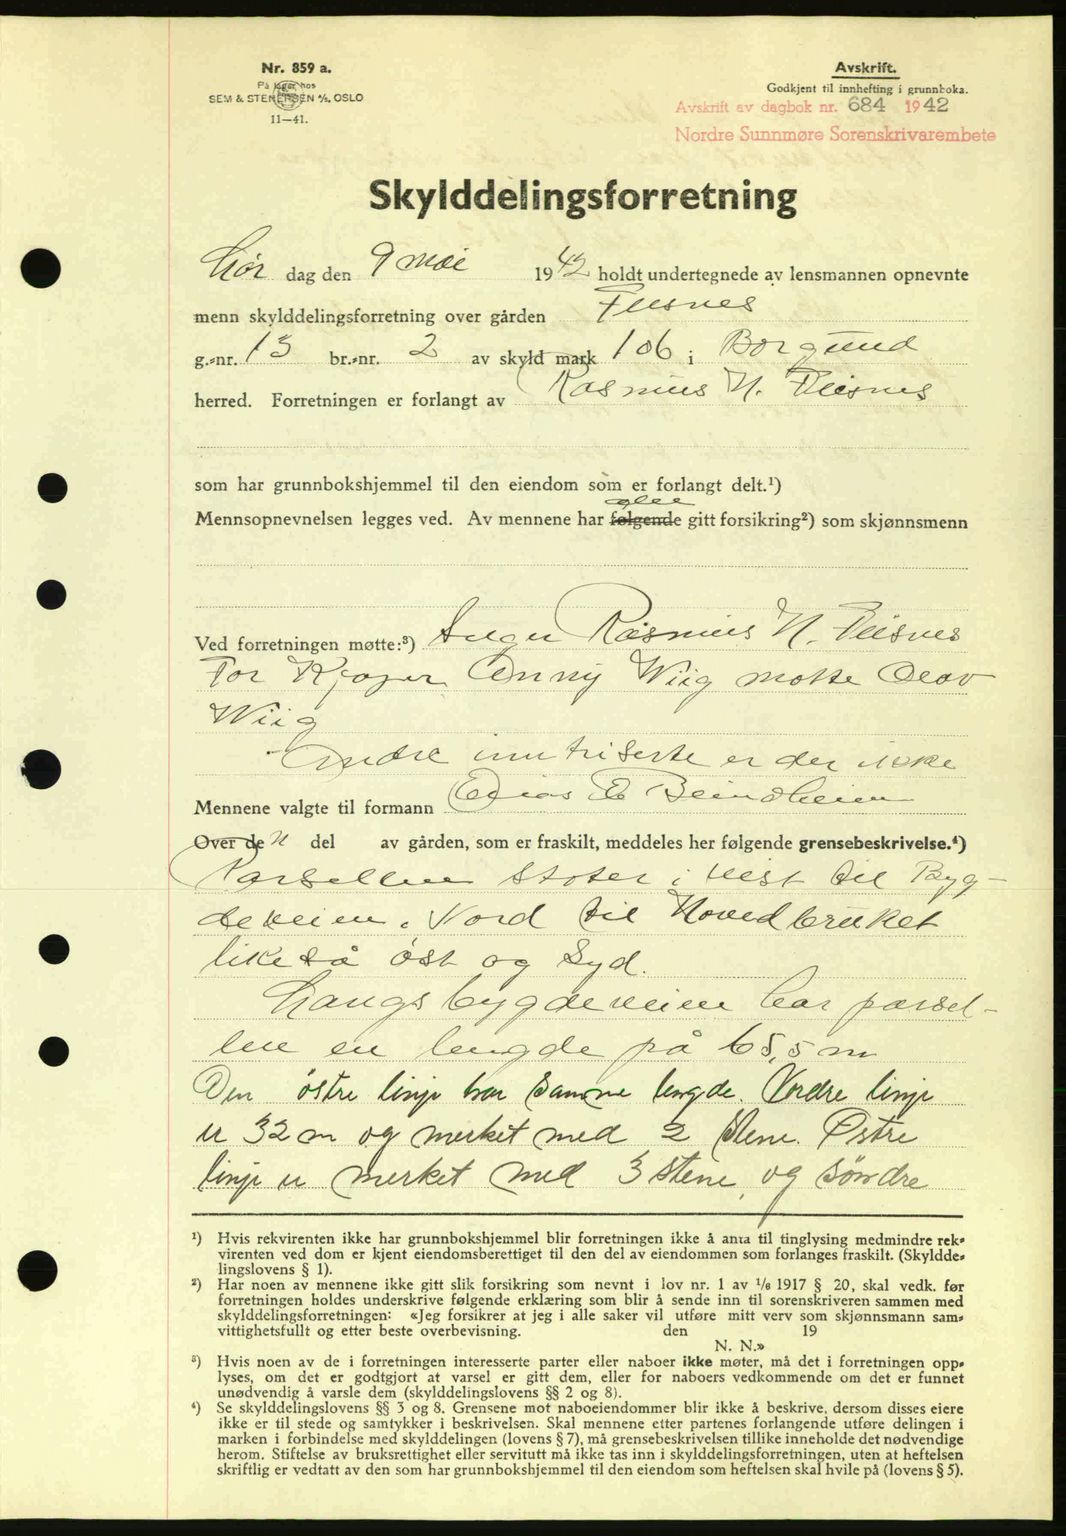 Nr. 859 a.
På lager hos
SEM & STENERSEN A/S, OSLO
11—41.
Avskrift.
Godkjent til innhefting i grunnboka.
Avskrift av dagbok nr. 684 1942
Nordre Sunnmøre Sorenskrivarembete
Skylddelingsforretning
Lør dag den 9 mai 1942 holdt undertegnede av lensmannen opnevnte
menn skylddelingsforretning over gården Flisnes
g.-nr. 13 br.-nr. 2 av skyld mark 106 i Borgund
herred. Forretningen er forlangt av Rasmus N. Flisnes
som har grunnbokshjemmel til den eiendom som er forlangt delt.¹)
alle
Mennsopnevnelsen legges ved. Av mennene har følgende gitt forsikring²) som skjønnsmenn
Ved forretningen møtte:³) Selger Rasmus N. Flisnes
For Kjøper Anny Wiig møtte Olav
Wiig
Andre inntriserte er der ikke
Mennene valgte til formann Elias E Beinsheim
Over den del av gården, som er fraskilt, meddeles her følgende grensebeskrivelse.⁴)
Parsellen støter i Vest til Byg-
deveien. Nord til Hovedbruket
likeså öst og Syd.
Langs bygdeveien har parsel-
len en lengde på 65,5 m
Den östre linje har samme lengde. Nordre linje
er 32 m og merket med 2 stene. Østre
linje er merket med 3 stene, og søndre
¹) Hvis rekvirenten ikke har grunnbokshjemmel blir forretningen ikke å anta til tinglysing medmindre rek-
virenten ved dom er kjent eiendomsberettiget til den del av eiendommen som forlanges fraskilt. (Skyldde-
lingslovens § 1).
²) Har noen av mennene ikke gitt slik forsikring som nevnt i lov nr. 1 av ¹/₆ 1917 § 20, skal vedk. før
forretningen holdes underskrive følgende erklæring som blir å sende inn til sorenskriveren sammen med
skylddelingsforretningen: «Jeg forsikrer at jeg i alle saker vil utføre mitt verv som skjønnsmann sam-
vittighetsfullt og etter beste overbevisning. den 19
N. N.»
³) Hvis noen av de i forretningen interesserte parter eller naboer ikke møter, må det i forretningen opp-
lyses, om det er godtgjort at varsel er gitt dem, eller for naboers vedkommende om det er funnet
unødvendig å varsle dem (skylddelingslovens §§ 2 og 8).
⁴) Se skylddelingslovens §§ 3 og 8. Grensene mot naboeiendommer blir ikke å beskrive, dersom disses eiere
ikke er til stede og samtykker i beskrivelsen. Skal mennene etter partenes forlangende utføre delingen i
marken i forbindelse med skylddelingen (lovens § 7), må grensebeskrivelsen tillike inneholde det nødvendige
herom. Stiftelse av bruksrettighet eller servitutt må ikke tas inn i skylddelingsforretningen, uten at heftelsen
skriftlig er vedtatt av den som har grunnbokshjemmel til den eiendom som heftelsen skal hvile på (lovens § 5).